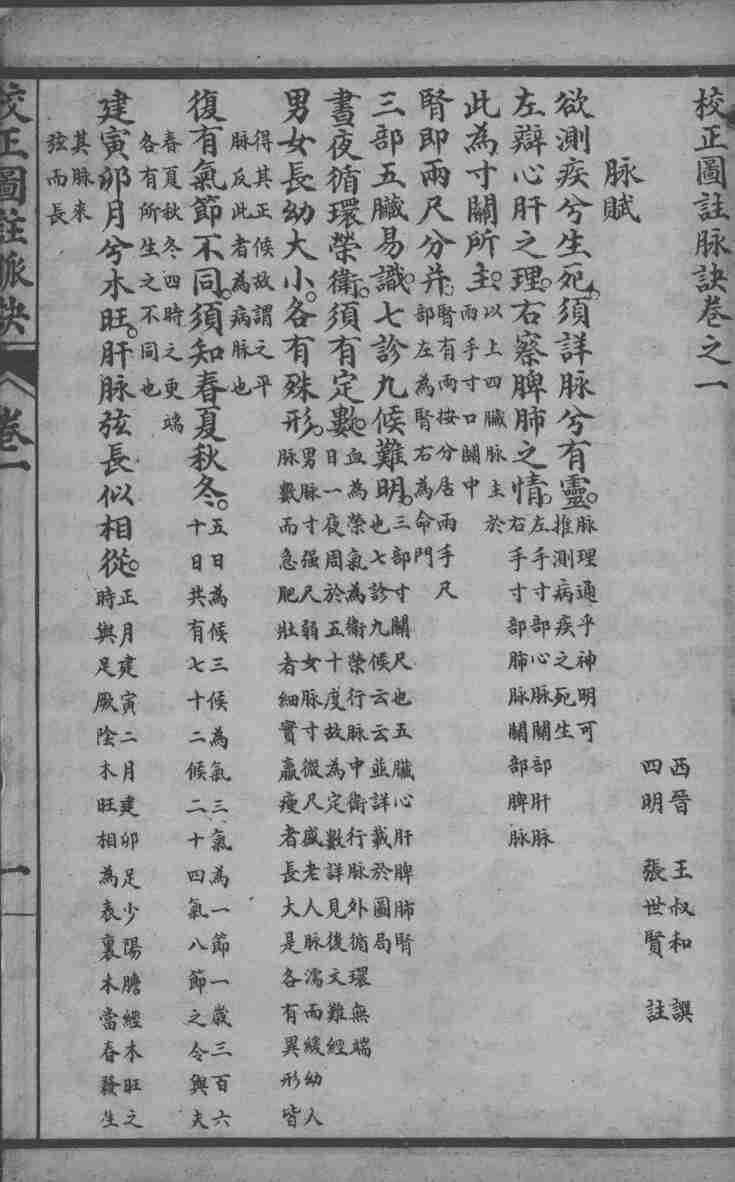 校正圖註脉訣卷之一
西晉 王叔和 譔
四明 張世賢 註
脉賦
欲測疾兮生死。須詳脉兮有靈。
脉理通乎神明可
推測病疾之死生
左辯心肝之理。右察脾肺之情。
左手寸部心脉關部肝脉
右手寸部肺脉關部脾脉
此為寸關所主。
以上四臟脉主於
兩手寸口關中
腎即兩尺分并。
腎有兩按分居兩手尺
部左為腎右為命門
三部五臟易識。七診九候難明。
三部寸關尺也五臟心肝脾肺腎
也七診九候云云並詳載於圖局
晝夜循環榮衛。須有定數。
血為榮氣為衛榮行脉中衛行脉外循環無端
日一夜周於五十度故為定數詳見後文難經
男女長幼大小。各有殊形。
男脉寸强尺弱女脉寸微尺盛老人脉濡而緩幼人
脉數而急肥壯者細實羸瘦者長大是各有異形皆
得其正候故謂之平
脉反此者為病脉也
復有氣節不同。須知春夏秋冬。
五日為候三候為氣三氣為一節一歲三百六
十日共有七十二候二十四氣八節之令與夫
春夏秋冬四時之更端
各有所生之不同也
建寅卯月兮木旺。肝脉弦長似相從。
正月建寅二月建卯足少陽膽經木旺之
時與足厥陰木旺相為表裏木當春發生
其脉來
弦而長
校正圖註脉訣 卷一 一